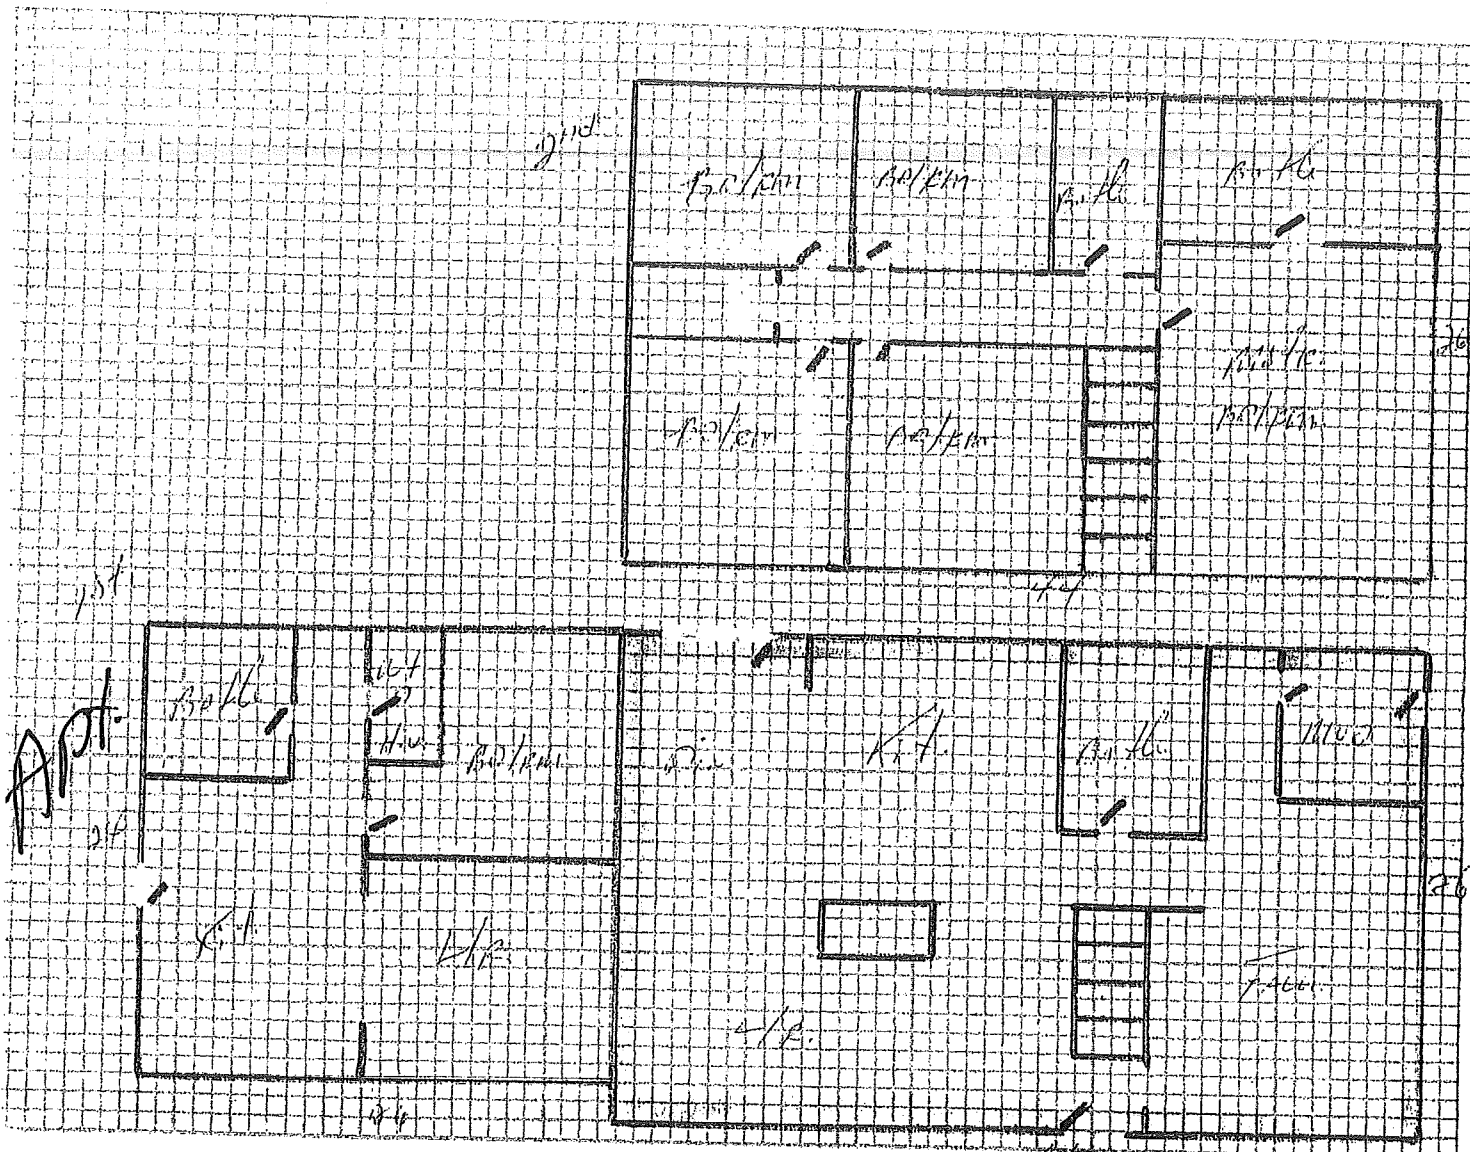 2nd
BD/RM
BD/RM
Bath
Bath
26
BD/RM
BD/RM
BD/RM
44
1st
Apt.
24
Bath
BD/RM
Din
Kit
Bath
Mud
26
Kit
L/R
L/R
Fam
24